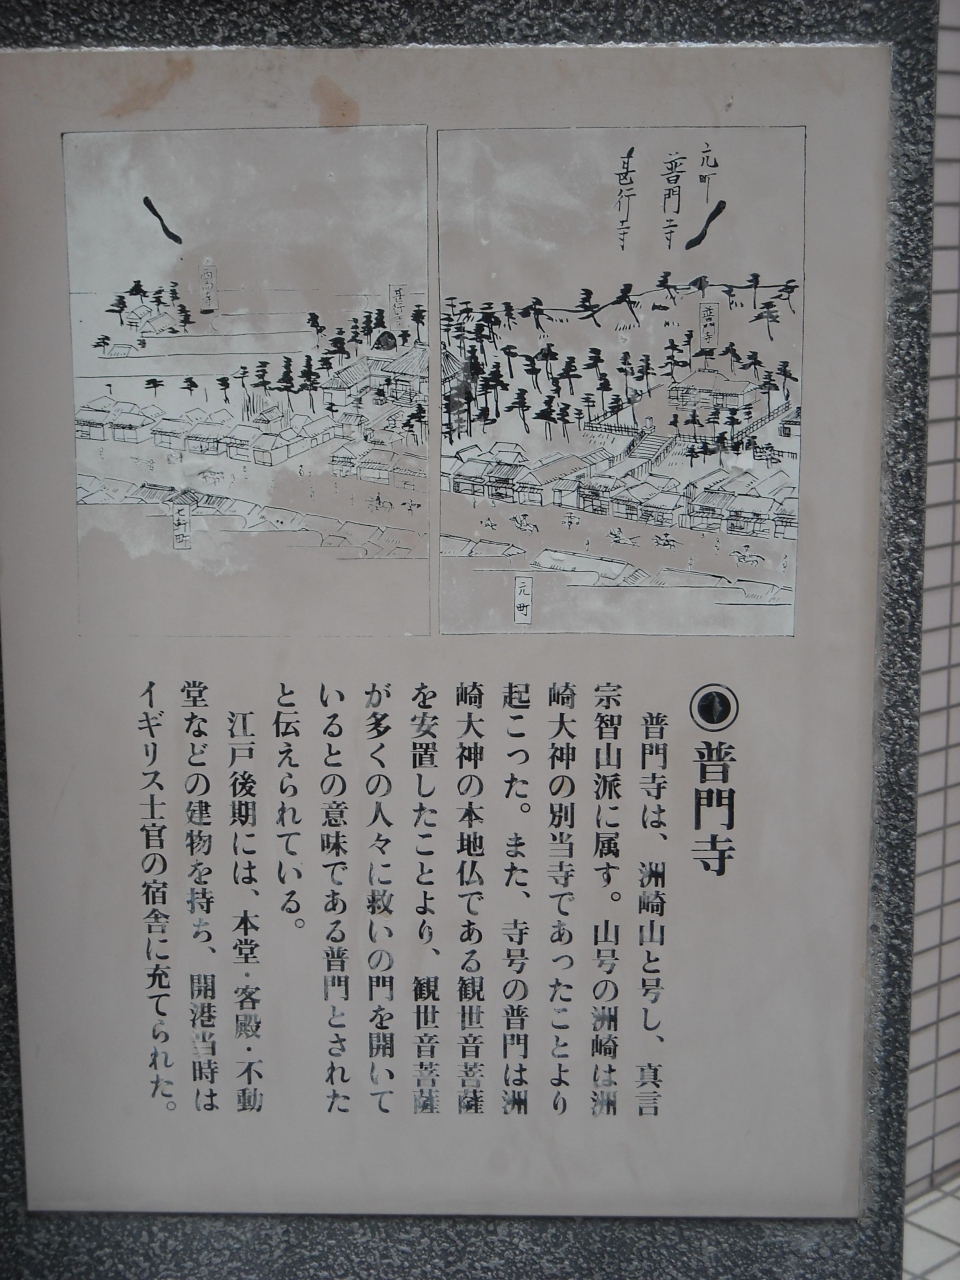 元町
普門寺
甚行寺
普門寺
甚行寺
元町
普門寺
普門寺は、洲崎山と号し、真言
宗智山派に属す。山号の洲崎は洲
崎大神の別当寺であったことより
起こった。また、寺号の普門は洲
崎大神の本地仏である観世音菩薩
を安置したことより、観世音菩薩
が多くの人々に救いの門を開いて
いるとの意味である普門とされた
と伝えられている。
江戸後期には、本堂・客殿・不動
堂などの建物を持ち、開港当時は
イギリス士官の宿舎に充てられた。